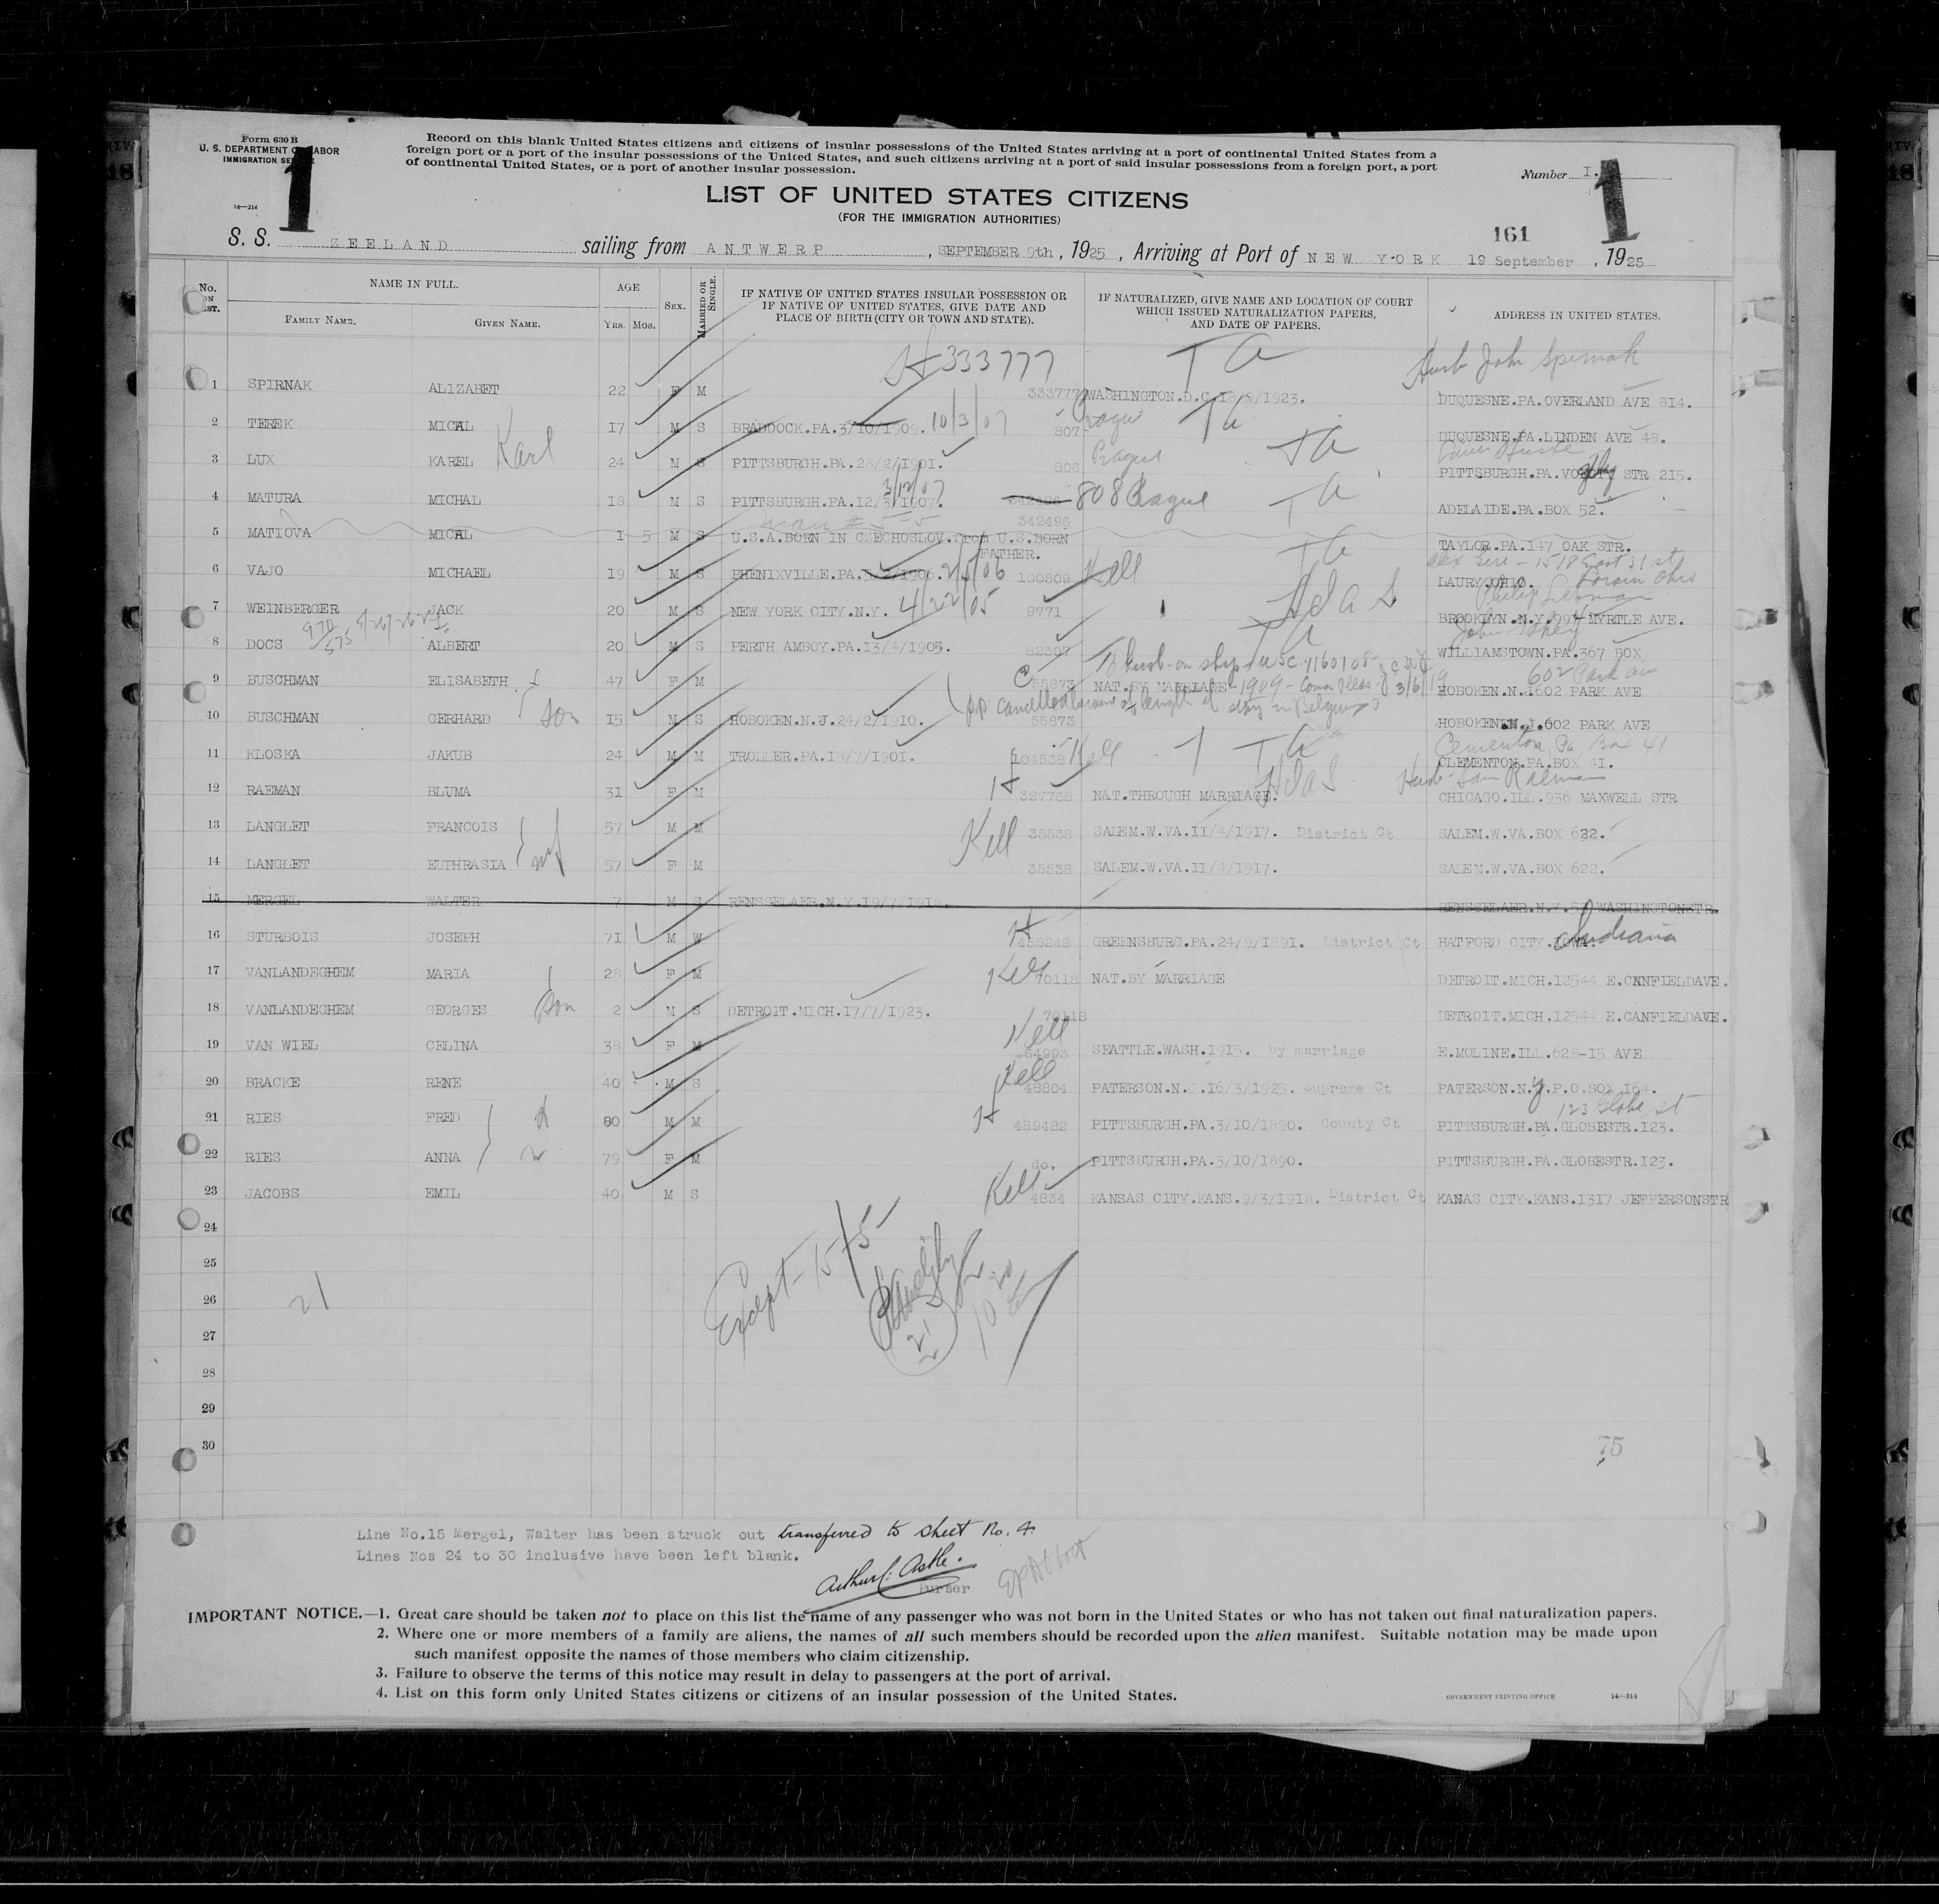 Form 630 B
U. S. DEPARTMENT OF LABOR
IMMIGRATION SERVICE
14—214
1
Record on this blank United States citizens and citizens of insular possessions of the United States arriving at a port of continental United States from a
foreign port or a port of the insular possessions of the United States, and such citizens arriving at a port of said insular possessions from a foreign port, a port
of continental United States, or a port of another insular possession.
Number I.
1
LIST OF UNITED STATES CITIZENS
(FOR THE IMMIGRATION AUTHORITIES)
161
S. S. ZEELAND sailing from ANTWERP, SEPTEMBER 9th, 1925, Arriving at Port of NEW YORK 19 September, 1925
No. ON LIST. NAME IN FULL. FAMILY NAME. GIVEN NAME. AGE YRS. MOS. SEX. MARRIED OR SINGLE. IF NATIVE OF UNITED STATES INSULAR POSSESSION OR IF NATIVE OF UNITED STATES, GIVE DATE AND PLACE OF BIRTH (CITY OR TOWN AND STATE). IF NATURALIZED, GIVE NAME AND LOCATION OF COURT WHICH ISSUED NATURALIZATION PAPERS, AND DATE OF PAPERS. ADDRESS IN UNITED STATES.
333777 TA Husb John Spirnak
1 SPIRNAK ALIZABET 22 F M 333777 WASHINGTON.D.C.18/9/1923. DUQUESNE.PA.OVERLAND AVE 814.
2 TEREK MICAL 17 M S BRADDOCK.PA.3/10/1909. 10/3/07 807 Prague TA DUQUESNE.PA.LINDEN AVE 48.
3 LUX KAREL Karl 24 M S PITTSBURGH.PA.28/2/1901. 806 Prague TA PITTSBURGH.PA. STR 215.
4 MATURA MICHAL 18 M S PITTSBURGH.PA.12/3/1907. 3/12/07 342496 808 Prague TA ADELAIDE.PA.BOX 52.
5 MATIOVA MICAL 1 5 M S U.S.A.BORN IN CZECHOSLOV.from U.S.BORN FATHER. 342496 TAYLOR.PA.147 OAK STR.
6 VAJO MICHAEL 19 M S PHENIXVILLE.PA.5/2/1906. 2/5/06 100509 Kell TA LAURY.OHIO. 1518 East 31 st Lorain Ohio
7 WEINBERGER JACK 20 M S NEW YORK CITY.N.Y. 4/22/05 9771 BROOKLYN.N.Y.994 MYRTLE AVE.
8 DOCS ALBERT 20 M S PERTH AMBOY.PA.13/4/1905. 82307 TA WILLIAMSTOWN.PA.367 BOX
9 BUSCHMAN ELISABETH 47 F M 55873 NAT.BY MARRIAGE 1909 HOBOKEN.N.1602 PARK AVE 602 Park av
10 BUSCHMAN GERHARD son 15 M S HOBOKEN.N.J.24/2/1910. pp cancelled because of length of stay in Belgium 55873 HOBOKEN.N.J.602 PARK AVE
11 KLOSKA JAKUB 24 M M TROLLER.PA.18/7/1901. 104538 Kell TA CLEMENTON.PA.BOX 41. Cementon, Pa, Box 41
12 RAEMAN BLUMA 31 F M 327788 NAT.THROUGH MARRIAGE. CHICAGO.ILL.936 MAXWELL STR
13 LANGLET FRANCOIS 57 M M Kell 35538 SALEM.W.VA.11/4/1917. District Ct SALEM.W.VA.BOX 622.
14 LANGLET EUPHRASIA 57 F M 35538 SALEM.W.VA.11/4/1917. SALEM.W.VA.BOX 622.
15 MERGEL WALTER 7 M S RENSSELAER.N.Y.19/7/1918 RENSSELAER.N.Y. WASHINGTONSTR.
16 STURBOIS JOSEPH 71 M W 455248 GREENSBURG.PA.24/9/1891. District Ct HATFORD CITY. Indiana
17 VANLANDEGHEM MARIA 28 F M Kell 70118 NAT.BY MARRIAGE DETROIT.MICH.12544 E.CANFIELDAVE.
18 VANLANDEGHEM GEORGES son 2 M S DETROIT.MICH.17/7/1923. 70118 DETROIT.MICH.12544 E.CANFIELDAVE.
19 VAN WIEL CELINA 38 F M Kell 64993 SEATTLE.WASH.1915. by marriage E.MOLINE.ILL.628-15 AVE
20 BRACKE RENE 40 M S Kell 48804 PATERSON.N.J.16/3/1925. Supreme Ct PATERSON.N.J.P.O.BOX 164.
21 RIES FRED 80 M M 489482 PITTSBURGH.PA.3/10/1890. County Ct PITTSBURGH.PA.GLOBESTR.123. 123 Globe st
22 RIES ANNA 79 F M do. PITTSBURGH.PA.3/10/1890. PITTSBURGH.PA.GLOBESTR.123.
23 JACOBS EMIL 40 M S Kell 4834 KANSAS CITY.KANS.9/3/1918. District Ct KANAS CITY.KANS.1317 JEFFERSONSTR
24
25
26 21
27
28
29
30
Except - 15 + 5
75
Line No.15 Mergel, Walter has been struck out transferred to sheet No. 4.
Lines Nos 24 to 30 inclusive have been left blank.
Purser
IMPORTANT NOTICE.—1. Great care should be taken not to place on this list the name of any passenger who was not born in the United States or who has not taken out final naturalization papers.
2. Where one or more members of a family are aliens, the names of all such members should be recorded upon the alien manifest. Suitable notation may be made upon
such manifest opposite the names of those members who claim citizenship.
3. Failure to observe the terms of this notice may result in delay to passengers at the port of arrival.
4. List on this form only United States citizens or citizens of an insular possession of the United States.
GOVERNMENT PRINTING OFFICE 14—214